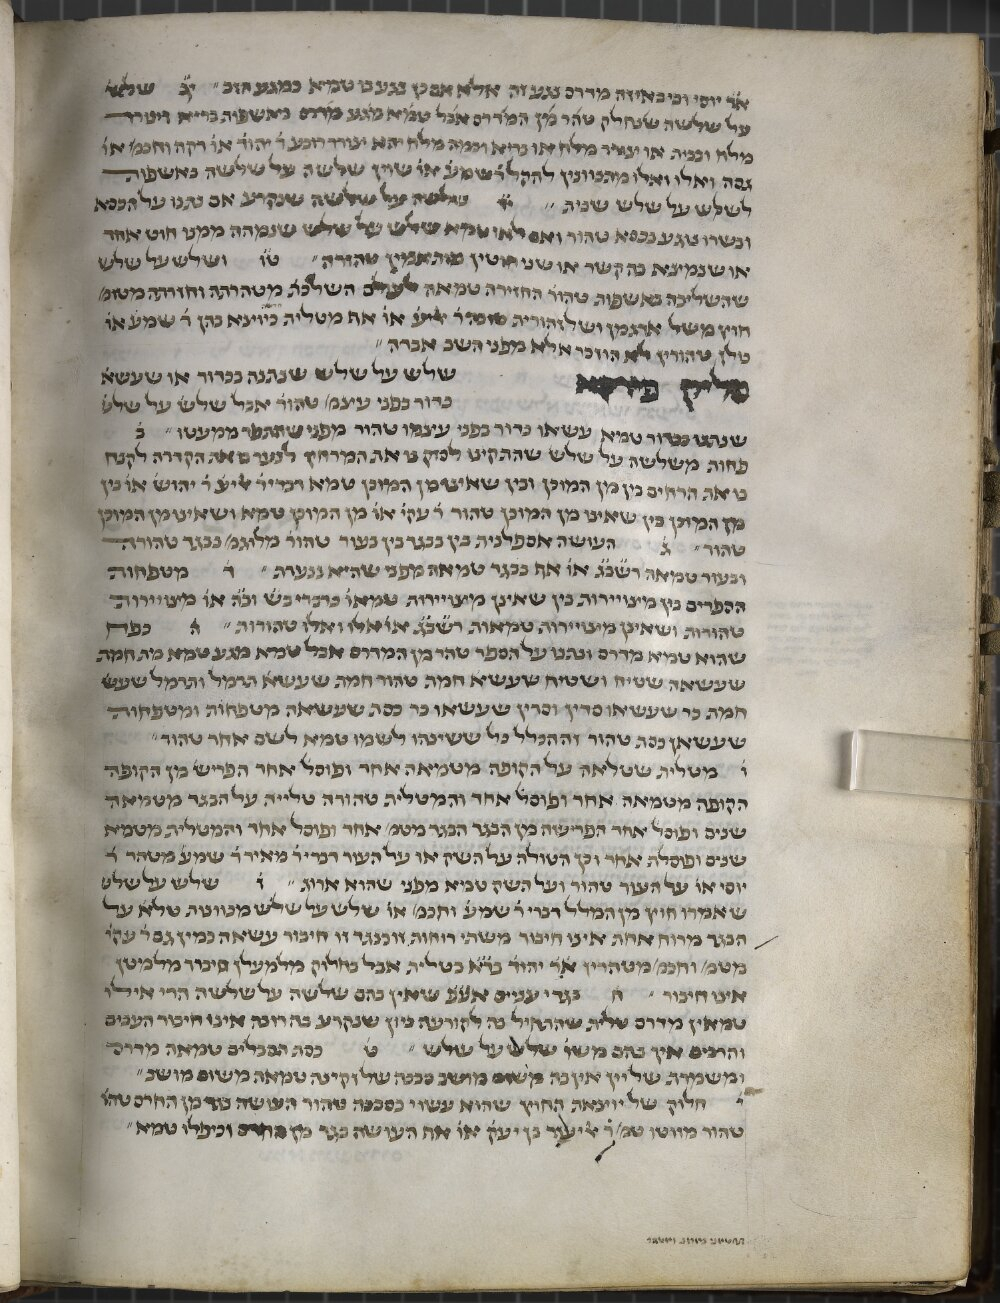 אר יוסי וכי באיזה מדרס נגע זה אלא אם כן נגע בו טמא כמגע הזב ״ יב שלש
על שלשה שנחלק טהר מן המדרס אבל טמא מגע מדרס באשפות בריא וצורר
מלח ובבית או יצורר מלח או בריא וכמה מלח יהא יצורר רובע ר׳ יהוד׳ או׳ רקה וחכמ׳ או׳
גסה ואלו ואלו מתכוונין להקל ר׳ שמע׳ או׳ שוין שלשה על שלשה באשפות
לשלש על שלש שבית ״ שלשה על שלשה שנקרע אם נתנו על הכסא
ובשרו נוגע בכסא טהור ואם לאו טמא שלש על שלש שנמהה ממנו חוט אחד
או שנמצא בה קשר או שני חוטין מתאמין טהורה ״ טו ושלש על שלש
שהשליכה באשפות טהור׳ החזירה טמאה לעולם השלכת׳ מטהרתה וחזרתה מטמ׳
חוץ משל ארגמן ושל זהורית טובה ר׳ ליע׳ או׳ אף מטלית כיוצא בהן ר׳ שמע׳ או׳
כולן טהורין לא הוזכר אלא מפני השב אבדה ״
סליק פירקא שלש על שלש שנתנה בכדור או שעשא
כדור בפני עצמ׳ טהור׳ אבל שלש׳ על שלש׳
שנתנו בכדור טמא עשאו כדור בפני עיצמו טהור מפני שהתפר ממעטו ״ ב
פחות משלשה על שלש שהתקינו לפוק בו את המרחץ לנער בו את הקדרה לקנח
בו את הרחים בין מן המוכן ובין שאינו מן המוכן טמא דברי ר׳ ליע׳ ר׳ יהוש׳ או׳ בין
מן המוכן בין שאינו מן המוכן טהור ר׳ עקי׳ או׳ מן המוכן טמא ושאינו מן המוכן
טהור ״ ג העושה אספלנית בין בבגד בין בעור טהור׳ מלוגמ׳ בבגד טהורה
ובעור טמאה רשב״ג או׳ אף בבגד טמאה מפני שהיא ננערת ״ ד מטפחות
הספרים בין מיצויירות בין שאינן מיצויירות טמאו׳ כדברי בש׳ ובה׳ או׳ מיצויירות
טהורות ושאינן מיצויירות טמאות רשב״ג או׳ אלו ואלו טהורות ״ ה כפח
שהוא טמא מדרס ונתנו על הספר טהר מן המדרס אבל טמא מגע טמא מת חמת
שעשאה שטיח ושטיח שעשא חמת טהור חמת שעשא תרמל ותרמל שעש׳
חמת כר שעשאו סדין וסדין שעשאו כר כסת שעשאה מטפחות ומטפחות
שעשאן כסת טהור זה הכלל כל ששינהו לשמו טמא לשם אחר טהור ״
ו מטלית שטלאה על הקופה מטמאה אחד ופוסל אחד הפריש׳ מן הקופה
הקופה מטמאה אחד ופוסל אחד והמטלית טהורה טלייה על הבגד מטמאה
שנים ופוסל אחד הפרישה מן הבגד הבגד מטמ׳ אחד ופוסל אחד והמטלית מטמא
שנים ופוסלת אחד וכן הטולה על השק או על העור דברי ר׳ מאיר ר׳ שמע׳ מטהר ר׳
יוסי או׳ על העור טהור ועל השק טמא מפני שהוא ארוג ״ ז שלש על שלש
שאמרו חוץ מן המלל דברי ר׳ שמע׳ וחכמ׳ או׳ שלש על שלש מכוונות טלא על
הבגד מרוח אחת אינו חיבור משתי רוחות זו כנגד זו חיבור עשאה כמין גם ר׳ עקי׳
מטמ׳ וחכמ׳ מטהרין אר׳ יהוד׳ בדא׳ בטלית אבל בחלוק מלמעלן חיבור מלמטן
אינו חיבור ״ ח בגדי עניים אעפ׳ שאין בהם שלשה על שלשה הרי אילו
טמאין מדרס טלית שהתחיל בה לקורעה כיון שנקרע בה רובה אינו חיבור העבים
והרכים אין בהם משו׳ שלש על שלש ״ ט כסת הסבלים טמאה מדרס
ומשמרת של יין אין בה משום מושב סבכה של זקינה טמאה משום מושב ״
י חלוק של יוצאת החוץ שהוא עשוי כסבכה טהור העושה בגד מן החרם טהו׳
טהור מזוטו טמ׳ ר׳ ליעזר בן יעק׳ או׳ אף העושה בגד מן החרם וכיפלו טמא ״